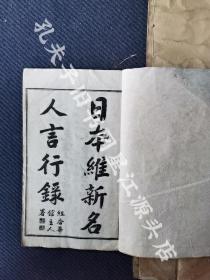 日本維新名
人言行錄
館主人
著
孔夫子旧书网星江源头店